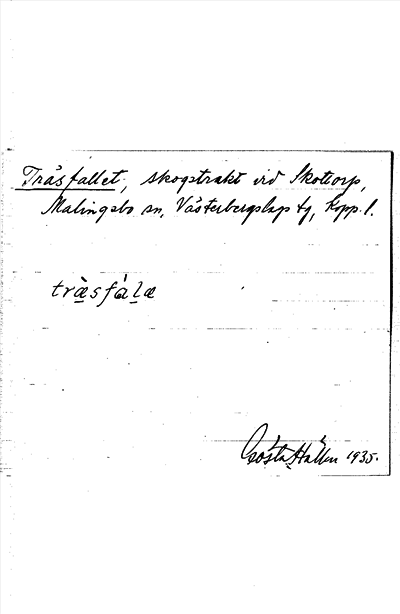 Träsfallet, skogstrakt vid Skottorp,
Malingsbo sn, Västerbergslags tg, Kopp. l.
træ̀sfála
Gösta Hallén 1935.